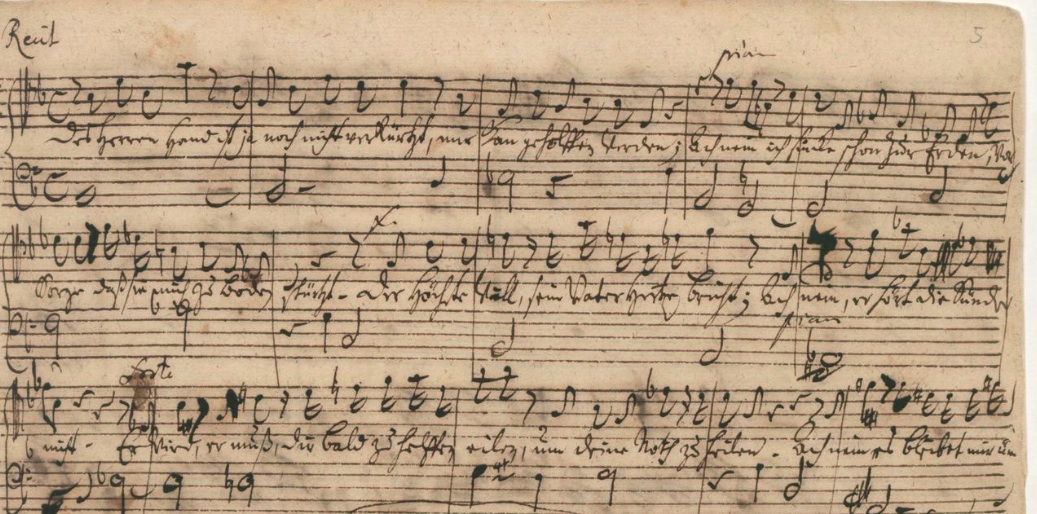 Recit
5
pian
Des Herren Hand ist ja noch nicht verkürzt, mir kan geholffen werden; Ach nein ich sincke schon zur Erden, vor
f.
Sorge daß sie mich zu Boden stürtzt - Der Höchste will, sein Vater Hertze bricht; Ach nein, er hört die Sünder
pian
forte
nicht - Er wird, er muß, dir bald zu helffen eilen, um deine Noth zu heilen - Ach nein es bleibet mir um